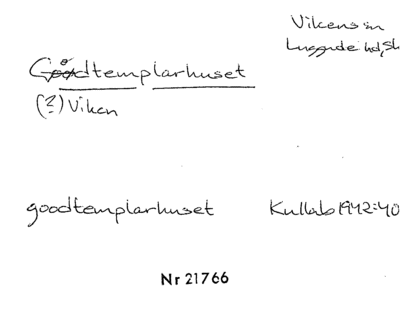 Vikens sn
Luggude hd, Sk
Goodtemplarhuset
(?) Viken
goodtemplarhuset Kullab 1942:40
Nr 21766